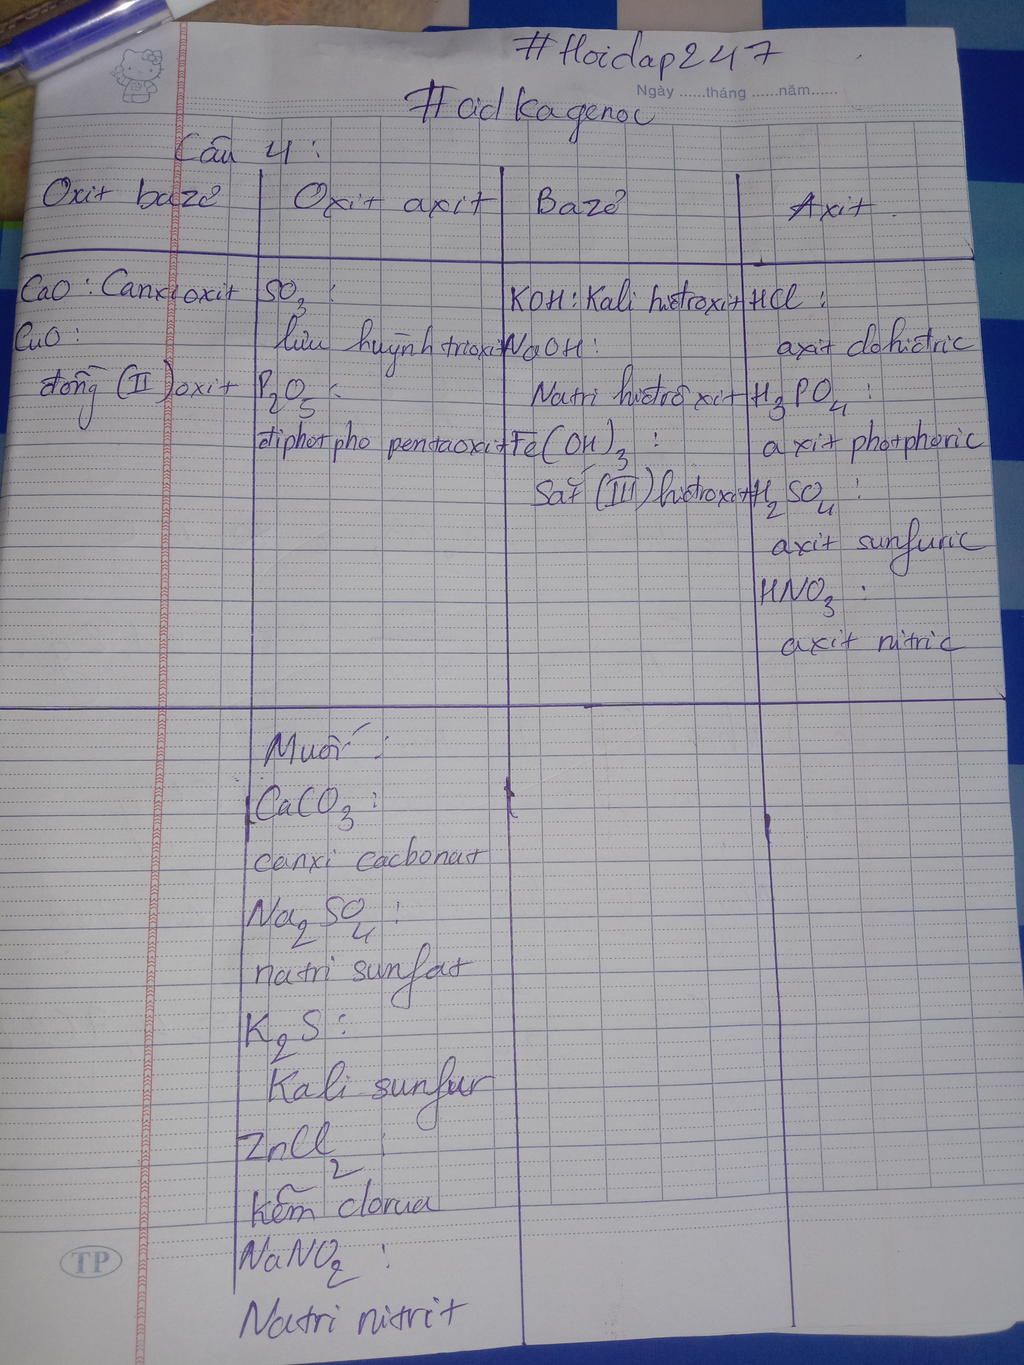 #Hoidap247
Ngày ......tháng ......năm......
#adkagenoc
Câu 4:
Oxit bazơ
CaO: Canxi oxit
CuO:
đồng (II) oxit
Oxit axit
SO3:
lưu huỳnh trioxit
P2O5:
điphotpho pentaoxit
Bazơ
KOH: Kali hiđroxit
NaOH:
Natri hiđroxit
Fe(OH)3:
Sắt (III) hiđroxit
Axit
HCl:
axit clohiđric
H3PO4:
axit photphoric
H2SO4:
axit sunfuric
HNO3:
axit nitric
Muối:
CaCO3:
canxi cacbonat
Na2SO4:
natri sunfat
K2S:
Kali sunfur
ZnCl2:
Kẽm clorua
NaNO2:
Natri nitrit
TP